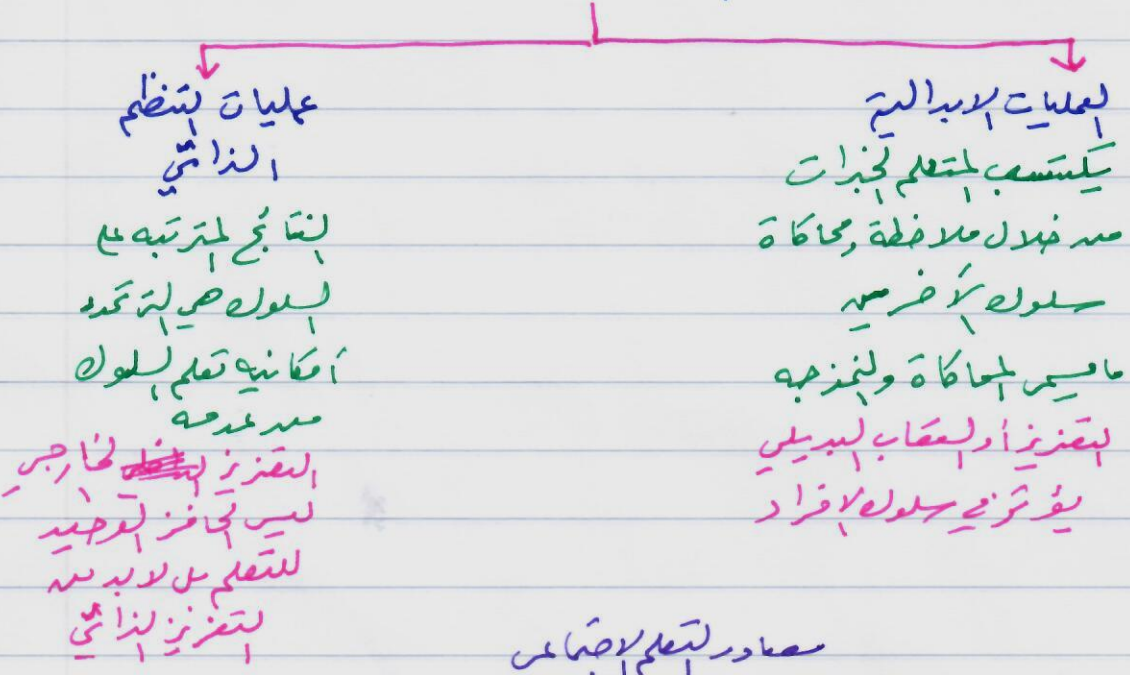 العمليات الابدالية
يكتسب المتعلم الخبرات
من خلال ملاحظة ومحاكاة
سلوك الآخرين
مايسمى المحاكاة والنمذجه
التعزيز أو العقاب البديلي
يؤثر في سلوك الافراد
عمليات التنظيم
الذاتي
النتائج المترتبه على
السلوك هي التي تحدد
أمكانيه تعلم السلوك
من عدمه
التعزيز الخارجي
ليس الحافز الوحيد
للتعلم بل لابد من
التعزيز الذاتي
مصادر التعلم الاجتماعي